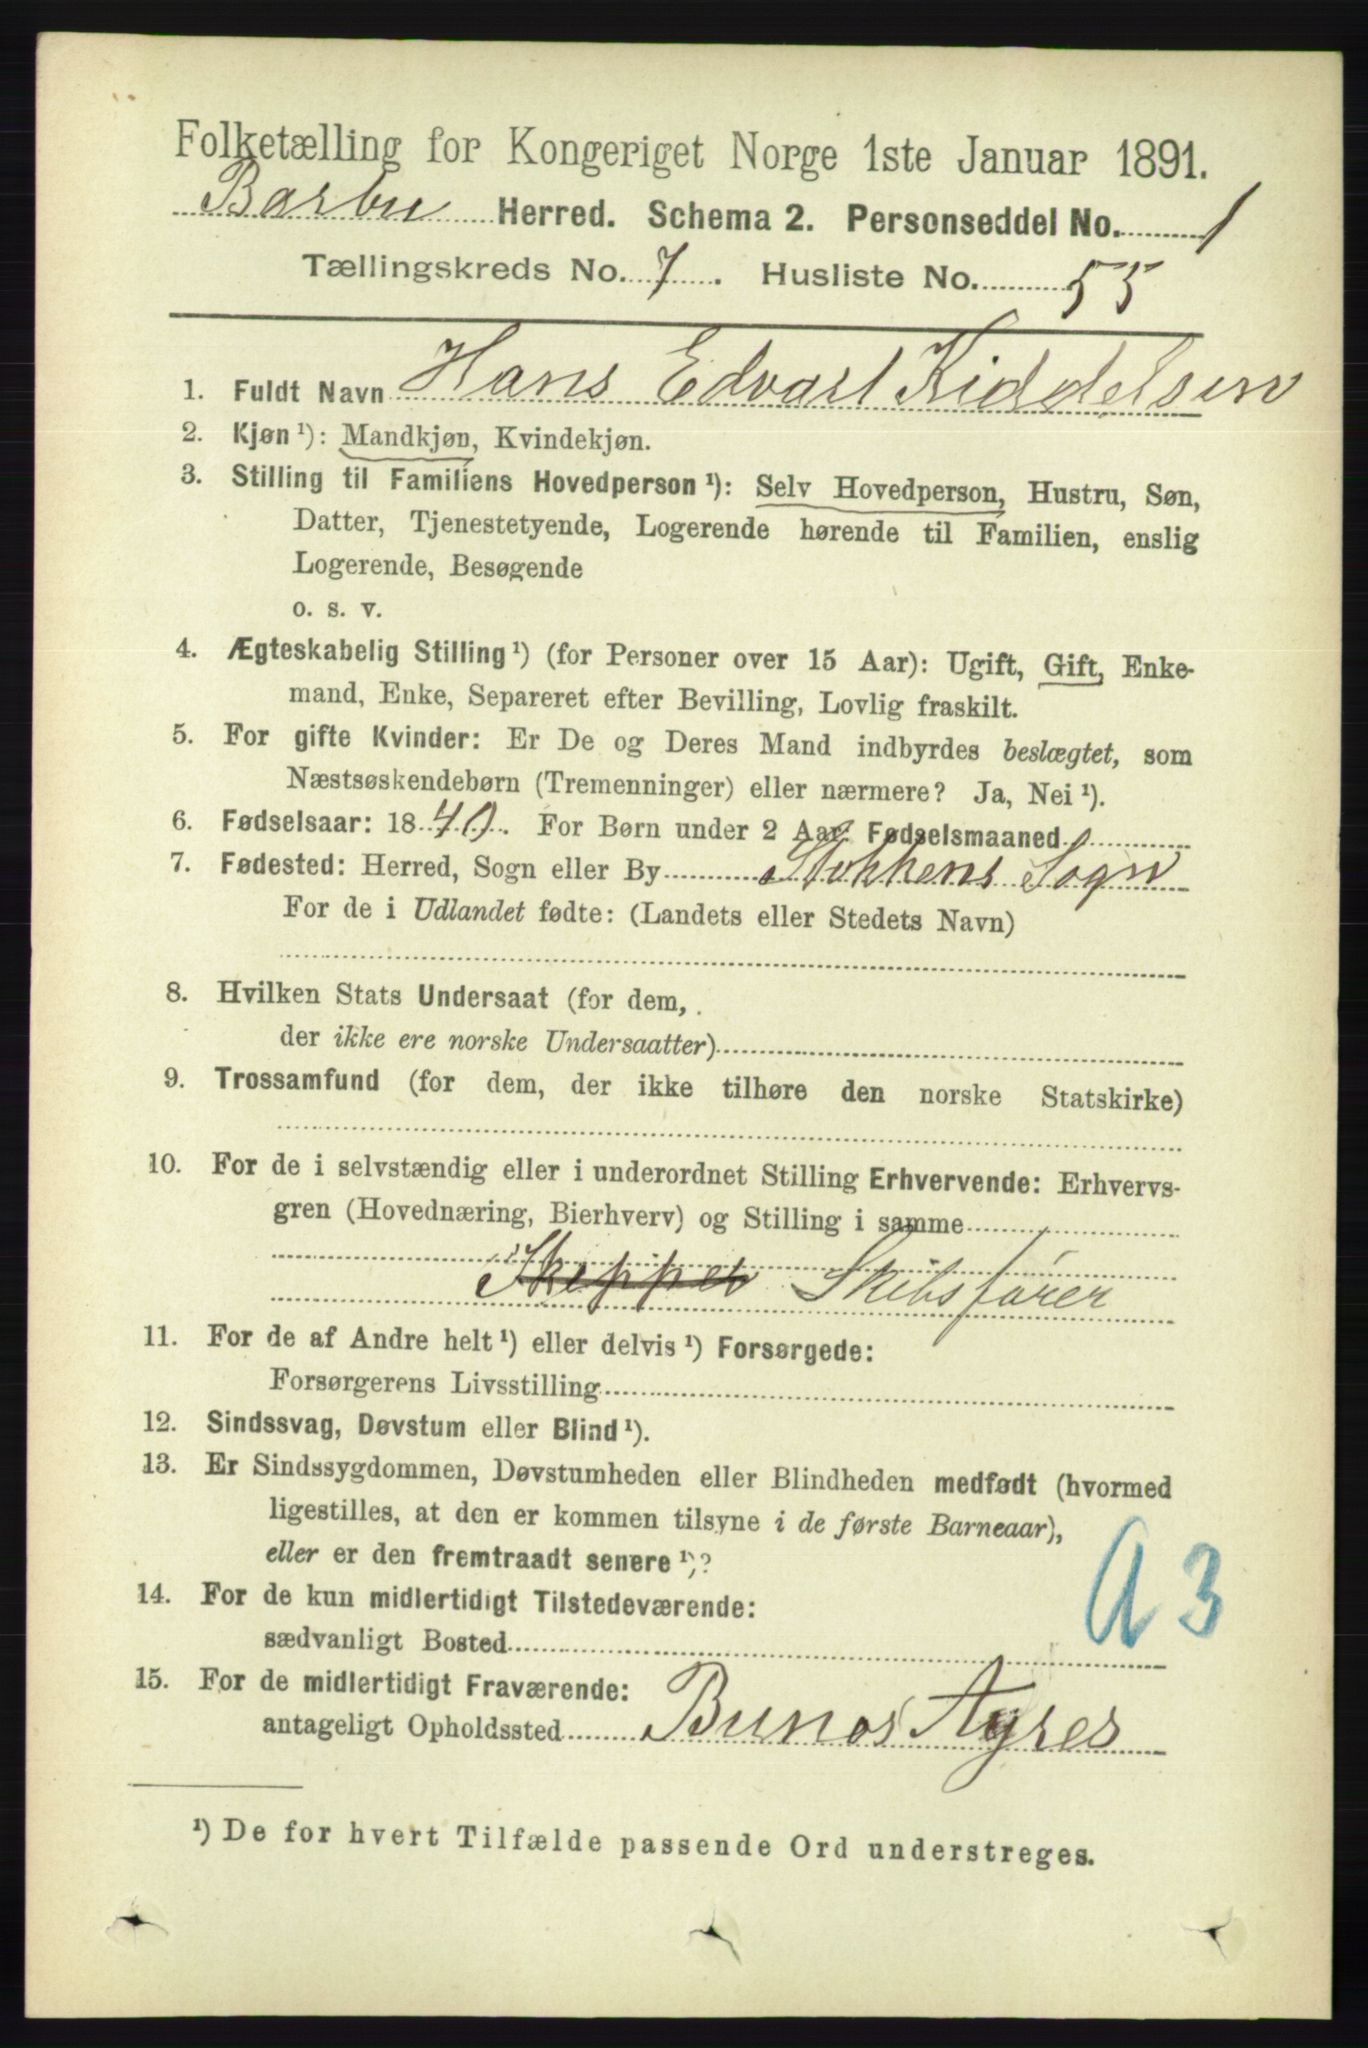 Folketælling for Kongeriget Norge 1ste Januar 1891.
Barbu Herred. Schema 2. Personseddel No. 1
Tællingskreds No. 7. Husliste No. 55
1. Fuldt Navn Hans Edvart Kiddelsen
2. Kjøn ¹): Mandkjøn, Kvindekjøn.
3. Stilling til Familiens Hovedperson ¹): Selv Hovedperson, Hustru, Søn,
Datter, Tjenestetyende, Logerende hørende til Familien, enslig
Logerende, Besøgende
o. s. v.
4. Ægteskabelig Stilling ¹) (for Personer over 15 Aar): Ugift, Gift, Enke-
mand, Enke, Separeret efter Bevilling, Lovlig fraskilt.
5. For gifte Kvinder: Er De og Deres Mand indbyrdes beslægtet, som
Næstsøskendebørn (Tremenninger) eller nærmere? Ja, Nei ¹).
6. Fødselsaar: 1840. For Børn under 2 Aar Fødselsmaaned
7. Fødested: Herred, Sogn eller By Stokkens Sogn
For de i Udlandet fødte: (Landets eller Stedets Navn)
8. Hvilken Stats Undersaat (for dem,
der ikke ere norske Undersaatter)
9. Trossamfund (for dem, der ikke tilhøre den norske Statskirke)
10. For de i selvstændig eller i underordnet Stilling Erhvervende: Erhvervs-
gren (Hovednæring, Bierhverv) og Stilling i samme
Skepper Skibsfører
11. For de af Andre helt ¹) eller delvis ¹) Forsørgede:
Forsørgerens Livsstilling
12. Sindssvag, Døvstum eller Blind ¹).
13. Er Sindssygdommen, Døvstumheden eller Blindheden medfødt (hvormed
ligestilles, at den er kommen tilsyne i de første Barneaar),
eller er den fremtraadt senere ¹)?
A 3
14. For de kun midlertidigt Tilstedeværende:
sædvanligt Bosted
15. For de midlertidigt Fraværende:
antageligt Opholdssted Bunos Ayres
¹) De for hvert Tilfælde passende Ord understreges.